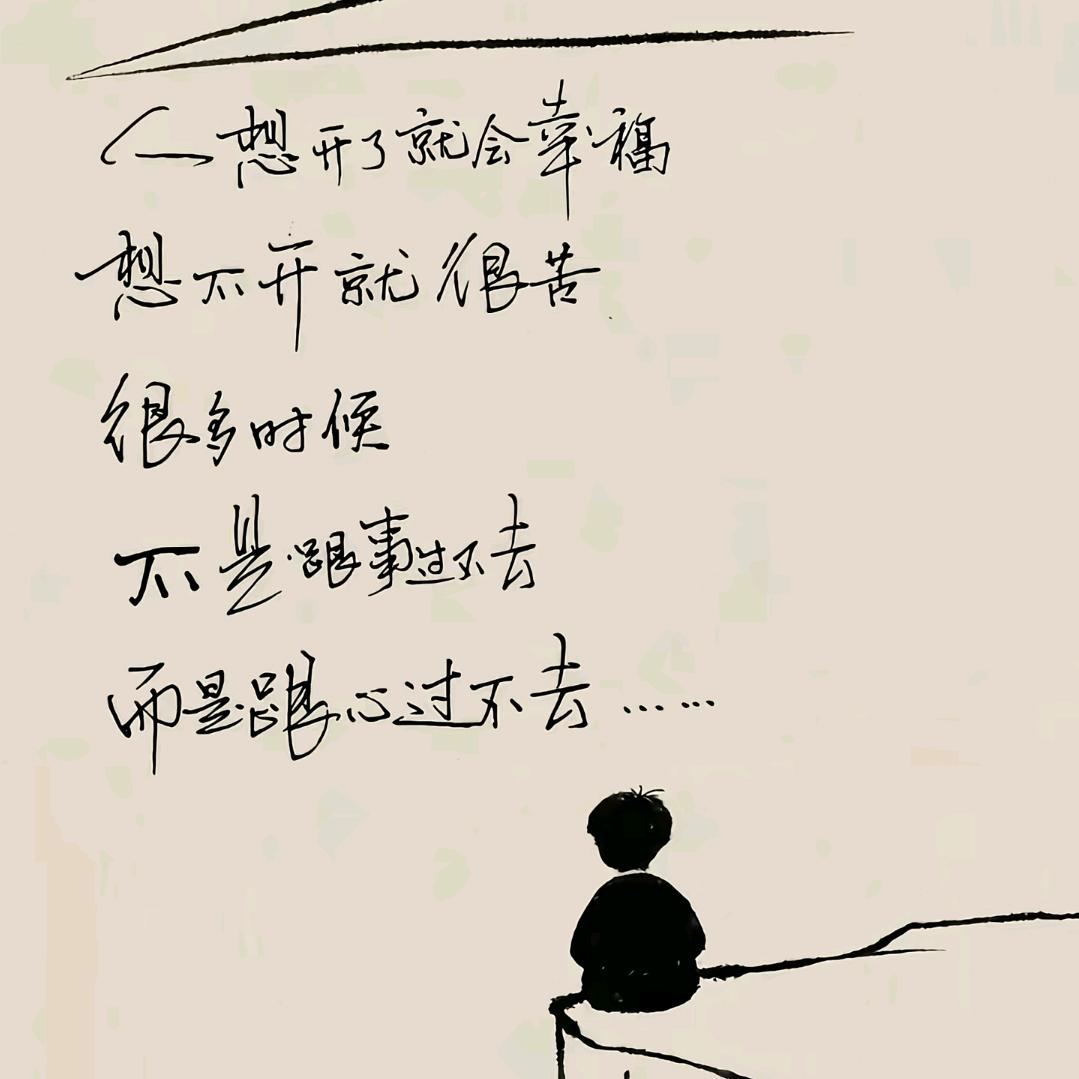 人想开了就会幸福
想不开就很苦
很多时候
不是跟事过不去
而是跟心过不去……